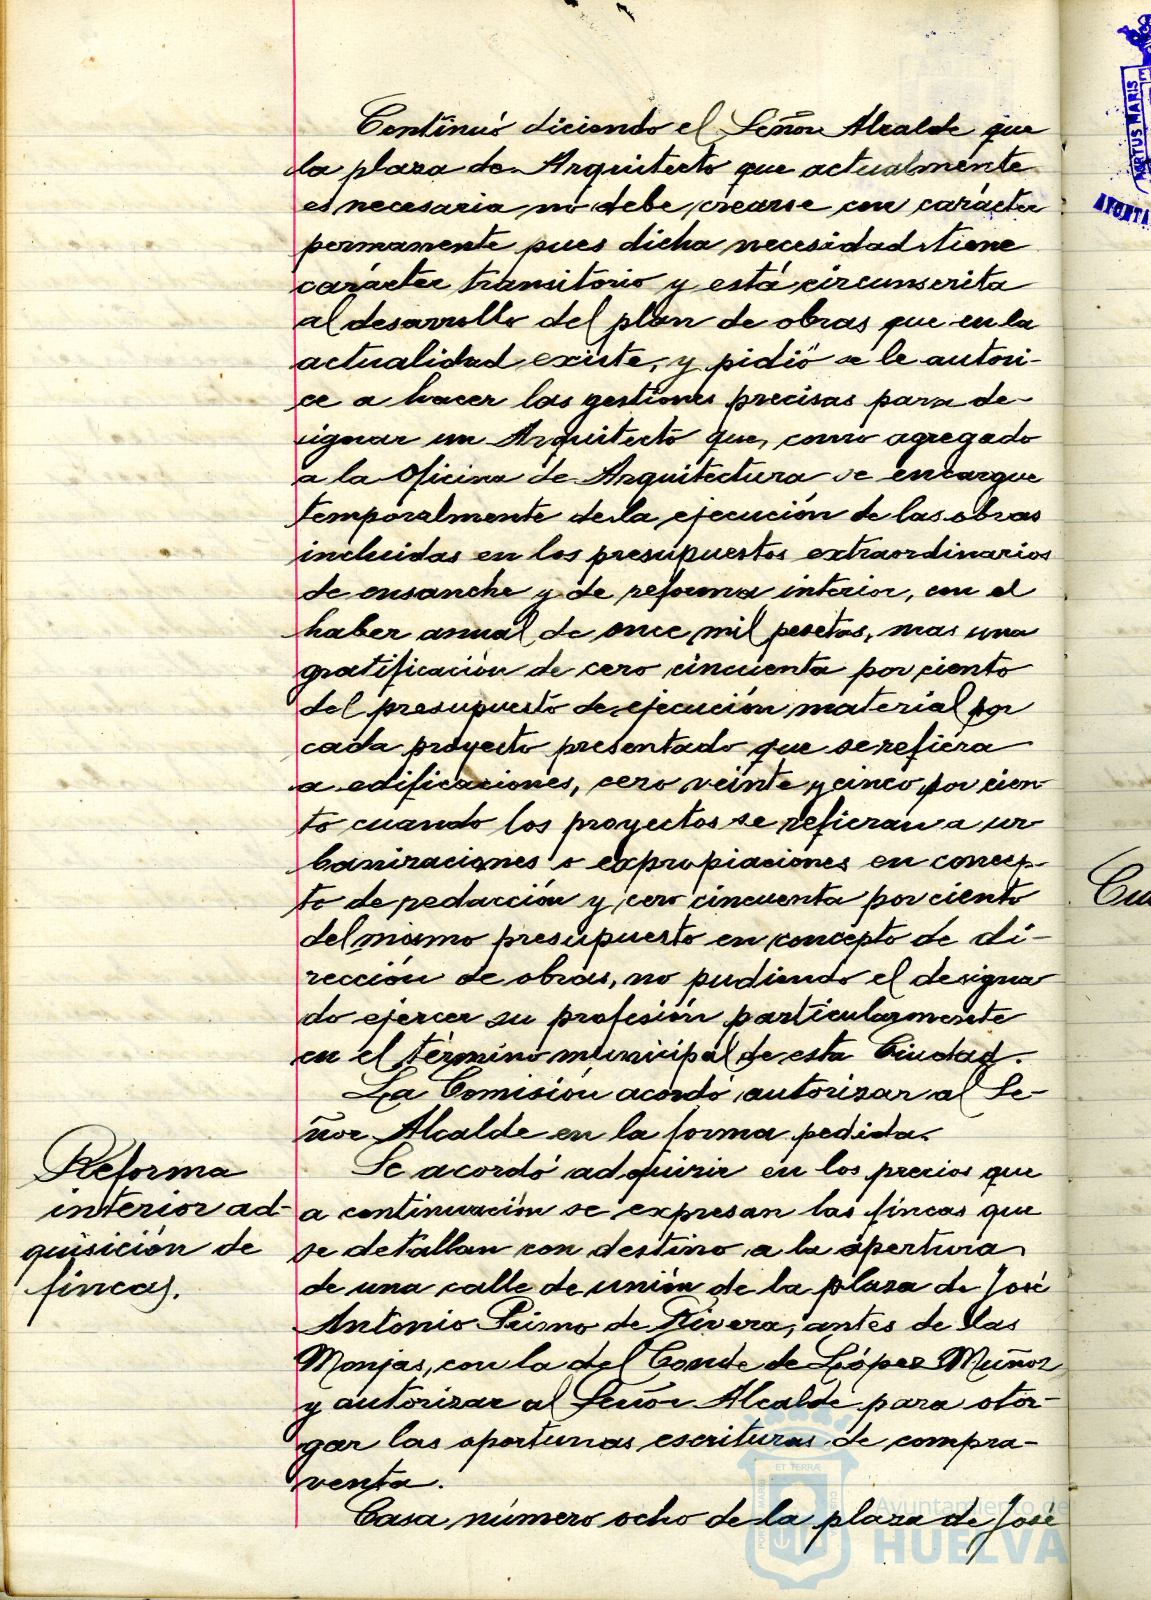 Continuó diciendo el Señor Alcalde que
la plaza de Arquitecto que actualmente
es necesaria no debe crearse con carácter
permanente pues dicha necesidad tiene
carácter transitorio y está circunscrita
al desarrollo del plan de obras que en la
actualidad existe, y pidió se le autori-
ce a hacer las gestiones precisas para de-
signar un Arquitecto que, como agregado
a la Oficina de Arquitectura se encargue
temporalmente de la ejecución de las obras
incluidas en los presupuestos extraordinarios
de ensanche y de reforma interior, con el
haber anual de once mil pesetas, mas una
gratificación de cero cincuenta por ciento
del presupuesto de ejecución material por
cada proyecto presentado que se refiera
a edificaciones, cero veinte y cinco por cien
to cuando los proyectos se refieran a ur
banizaciones o expropiaciones en concep-
to de redacción y cero cincuenta por ciento
del mismo presupuesto en concepto de di-
rección de obras, no pudiendo el designa
do ejercer su profesión particularmente
en el término municipal de esta Ciudad.
La Comisión acordó autorizar al Se-
ñor Alcalde en la forma pedida.
Reforma
interior ad-
quisición de
fincas.
Se acordó adquirir en los precios que
a continuación se expresan las fincas que
se detallan con destino a la apertura
de una calle de unión de la plaza de José
Antonio Primo de Rivera, antes de las
Monjas, con la del Conde de López Muñoz
y autorizar al Señor Alcalde para otor-
gar las oportunas escrituras de compra-
venta.
Casa número ocho de la plaza de José
Ayuntamiento de
HUELVA